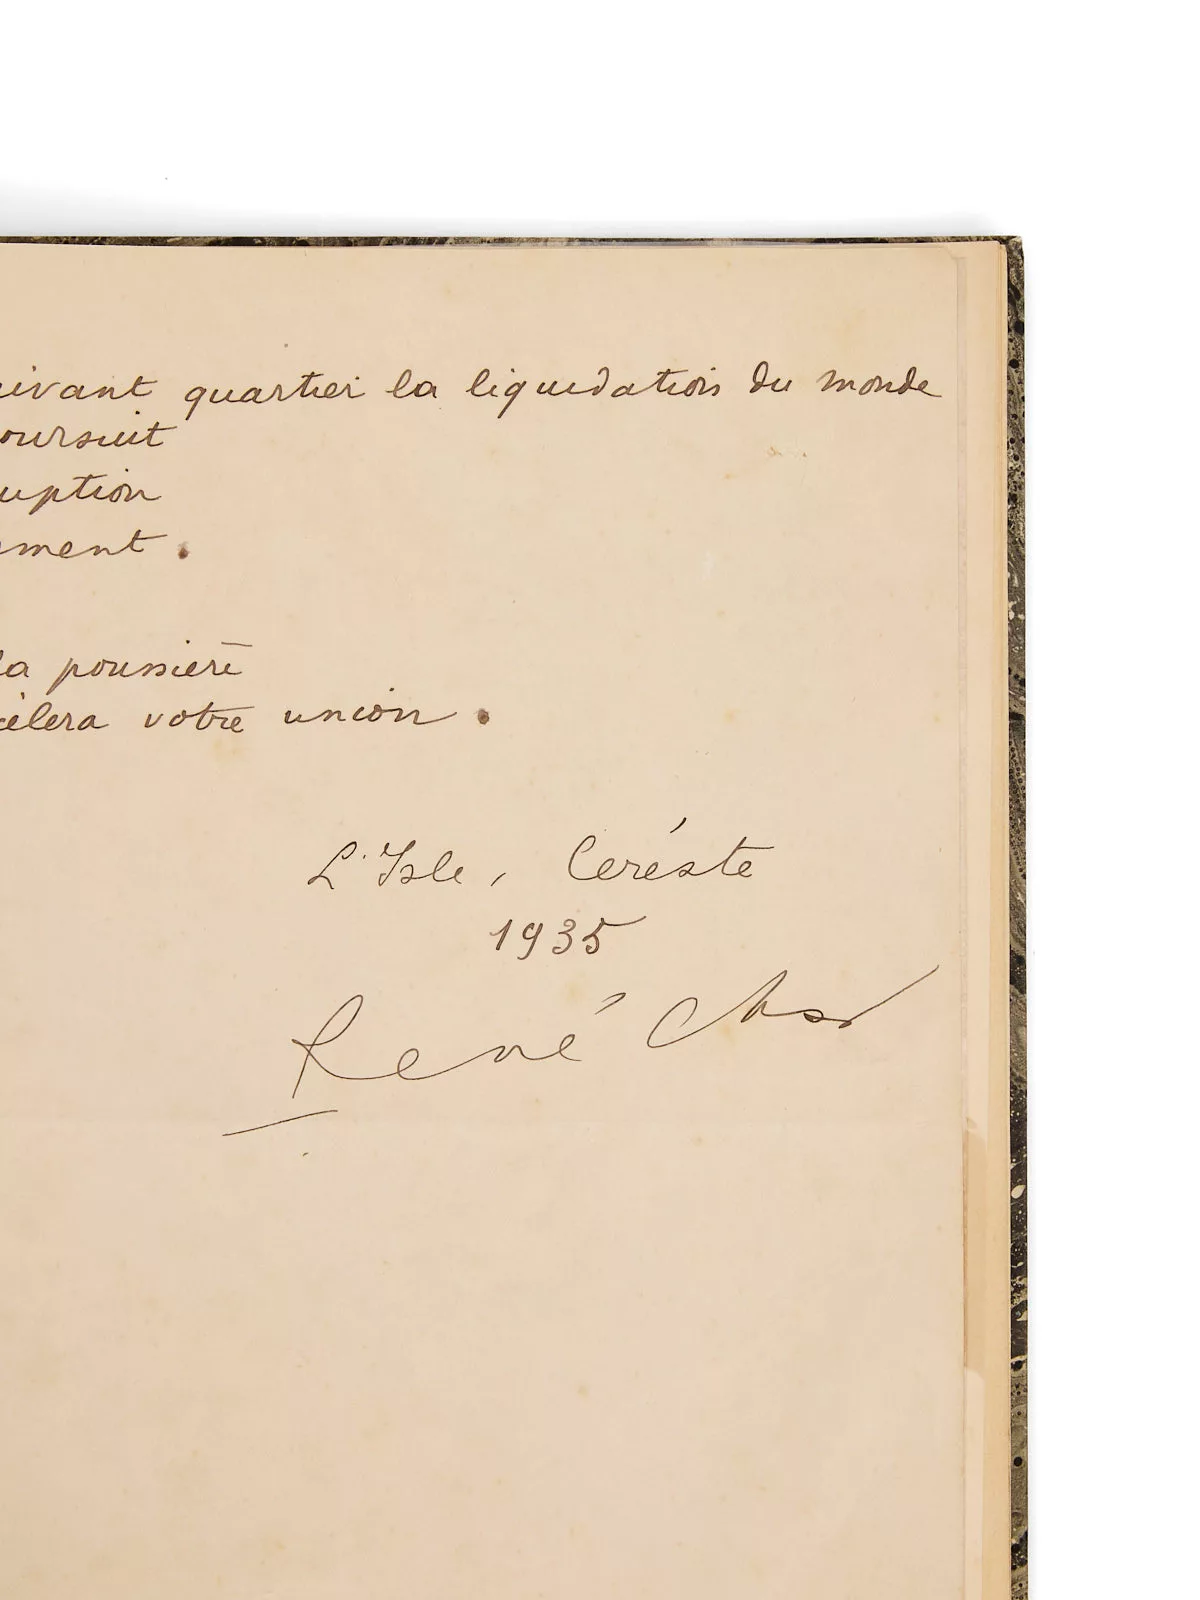 uivant quartier la liquidation du monde
oursuit
uption
ement.
la poussière
cèlera votre union.
L'Isle, Ceréste
1935
René Char